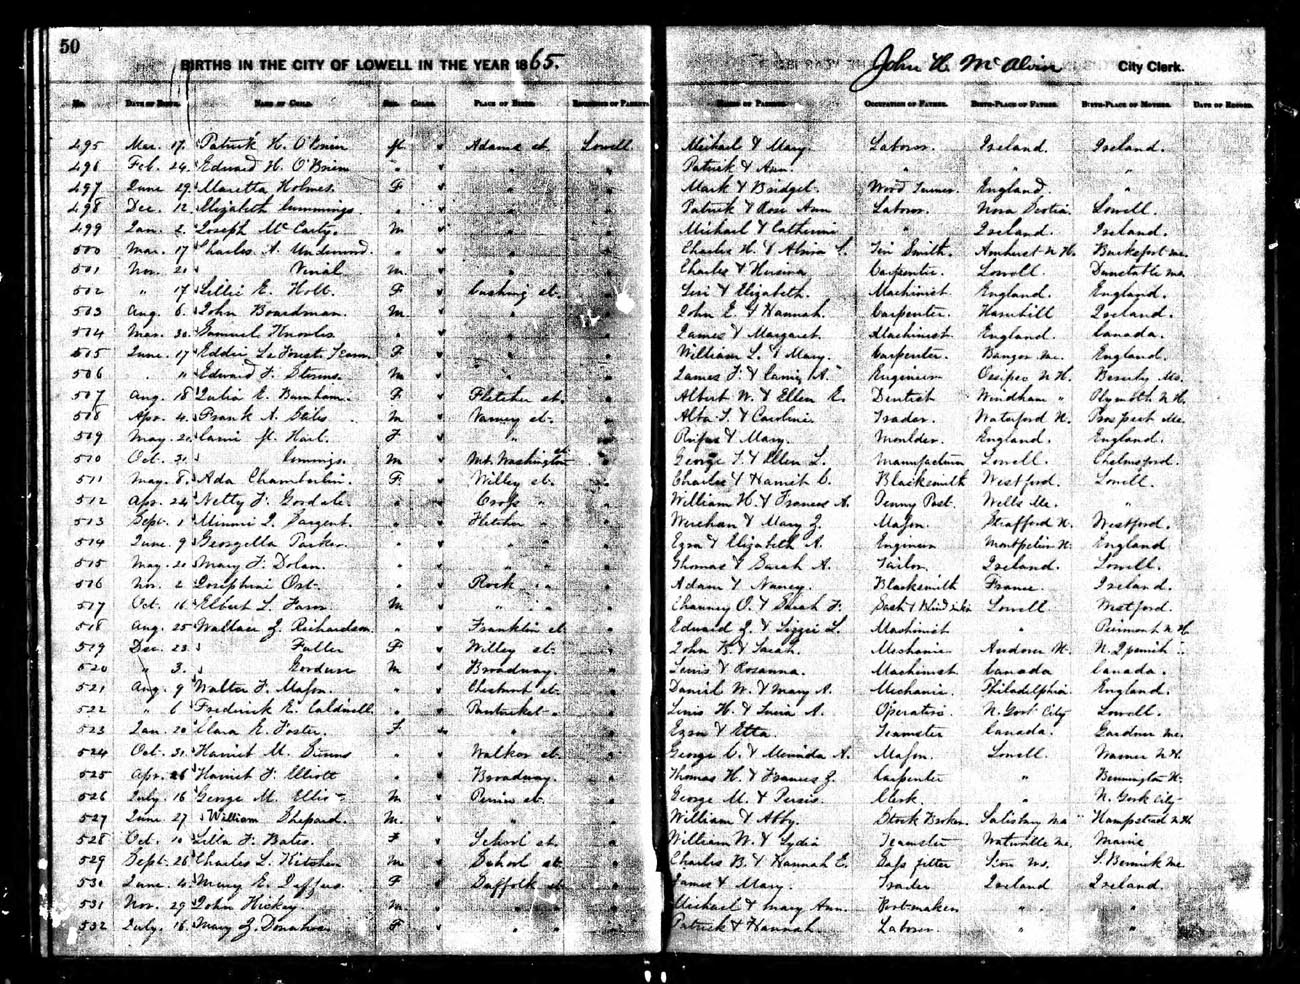 50
BIRTHS IN THE CITY OF LOWELL IN THE YEAR 1865. John H. McAlvin City Clerk.
No. DATE OF BIRTH. NAME OF CHILD. SEX. COLOR. PLACE OF BIRTH. RESIDENCE OF PARENTS. NAMES OF PARENTS. OCCUPATION OF FATHER. BIRTH-PLACE OF FATHER. BIRTH-PLACE OF MOTHER. DATE OF RECORD.
495 Mar. 17. Patrick H. O'Brien M. " Adams st. Lowell Michael & Mary. Laborer. Ireland. Ireland.
496 Feb. 24. Edward H. O'Brien " " " " Patrick & Ann. " " "
497 June 29. Maretta Holmes. F " " " Mark & Bridget. Wood Turner. England. "
498 Dec. 12. Elizabeth Cummings. " " " " Patrick & Rose Ann Laborer. Nova Scotia. Lowell.
499 Jan. 2. Joseph McCarty. M. " " " Michael & Catherine " Ireland. Ireland.
500 Mar. 17 Charles A. Underwood. " " " " Charles H. & Alvira S. Tin Smith. Amherst N.H. Bucksport Me.
501 Nov. 21 Vinal M. " " " Charles & Carpenter. Lowell. Dunstable Ma.
502 " 17 Lillie E. Holt. F " Cushing st. " Levi & Elizabeth. Machinist England. England.
503 Aug. 6. John Boardman. M. " " " John E. & Hannah. Carpenter. Haverhill Ireland.
504 Mar. 30. Samuel Knowles " " " " James & Margaret. Machinist England. Canada.
505 June. 17 Eddie La Forest F. " " " William L. & Mary. Carpenter. Bangor Me. England.
506 " " Edward F. Storms. M " " " James F. & A. Engineer Ossipee N.H. Beverly Ms.
507 Aug. 18 Julia E. Burnham. F. " Fletcher st. " Albert W. & Ellen E. Dentist Windham " Plymouth N.H.
508 Apr. 4. Frank A. Stiles M " Varney st. " Alba F. & Caroline Trader. Waterford Prospect Me.
509 May. 21. Carrie M. Hart. F " " " Rufus & Mary. Moulder. England. England.
510 Oct. 31. M. " Mt. Washington st. " George F. & Ellen L. Manufacturer Lowell. Chelmsford.
511 May. 8. Ada Chamberlin. F. " Willey st. " Charles & Harriet C. Blacksmith Westford. Lowell.
512 Apr. 24 Netty F. Gordale. " " Cross " " William H. & Frances A. Penny Post. Wells Me. "
513 Sept. 1 Minnie I. Sargent. " " Fletcher " " & Mary J. Mason. Strafford Westford.
514 June. 9 Georgella Parker. " " " " " Ezra & Elizabeth A. Engineer England
515 May. 20 Mary F. Dolan. " " " " " Thomas & Sarah A. Tailor. Ireland. Lowell.
516 Nov. 2 Josephine Ort. " " Rock " " Adam & Nancy. Blacksmith France. Ireland.
517 Oct. 16 Elbert L. M " " " " Chauncy O. & Sarah F. Sash & Blind Lowell Westford.
518 Aug. 25 Wallace J. Richardson. " " Franklin st. " Edward J. & Lizzie L. Machinist " Piermont N.H.
519 Dec. 23. Fuller F " Willey st. " John B. & Sarah. Mechanic Andover N. Ipswich "
520 " 3. M " Broadway. " Lewis & Rosanna. Machinist Canada Canada.
521 Aug. 9 Walter F. Mason. " " Chestnut st. " Daniel W. & Mary A. Mechanic. Philadelphia England.
522 " 6 Frederick E. Caldwell. " " Pawtucket " " Lewis H. & A. Operative N. York City Lowell.
523 Jan. 20 Clara E. Foster. F " " " Ezra & Etta. Teamster Canada. Gardner Me.
524 Oct. 31. Harriet M. " " Walker st. " George C. & A. Mason. Lowell. Warner N.H.
525 Apr. 26 Harriet F. Elliott " " Broadway. " Thomas H. & Frances J. Carpenter " Bennington
526 July. 16 George M. Ellis M. " Perrin st. " George M. & Persis. Clerk. " N. York City
527 June. 27 William Shepard. M. " " " William & Abby. Stock Broker. Salisbury Ma Hampstead N.H.
528 Oct. 10 Lilla F. Bates. F " School st. " William W. & Lydia Teamster Waterville Me. Maine
529 Sept. 28 Charles L. Kitchen M. " School st. " Charles B. & Hannah E. Gas fitter S. Berwick Me.
530 June. 4. Mary E. Jaffers. F " Suffolk st. " James & Mary. Trader Ireland Ireland.
531 Nov. 29 John Hickey M. " " " Michael & Mary Ann. Boot-maker " "
532 July. 16. Mary J. Donahoe F " " " Patrick & Hannah. Laborer. " "